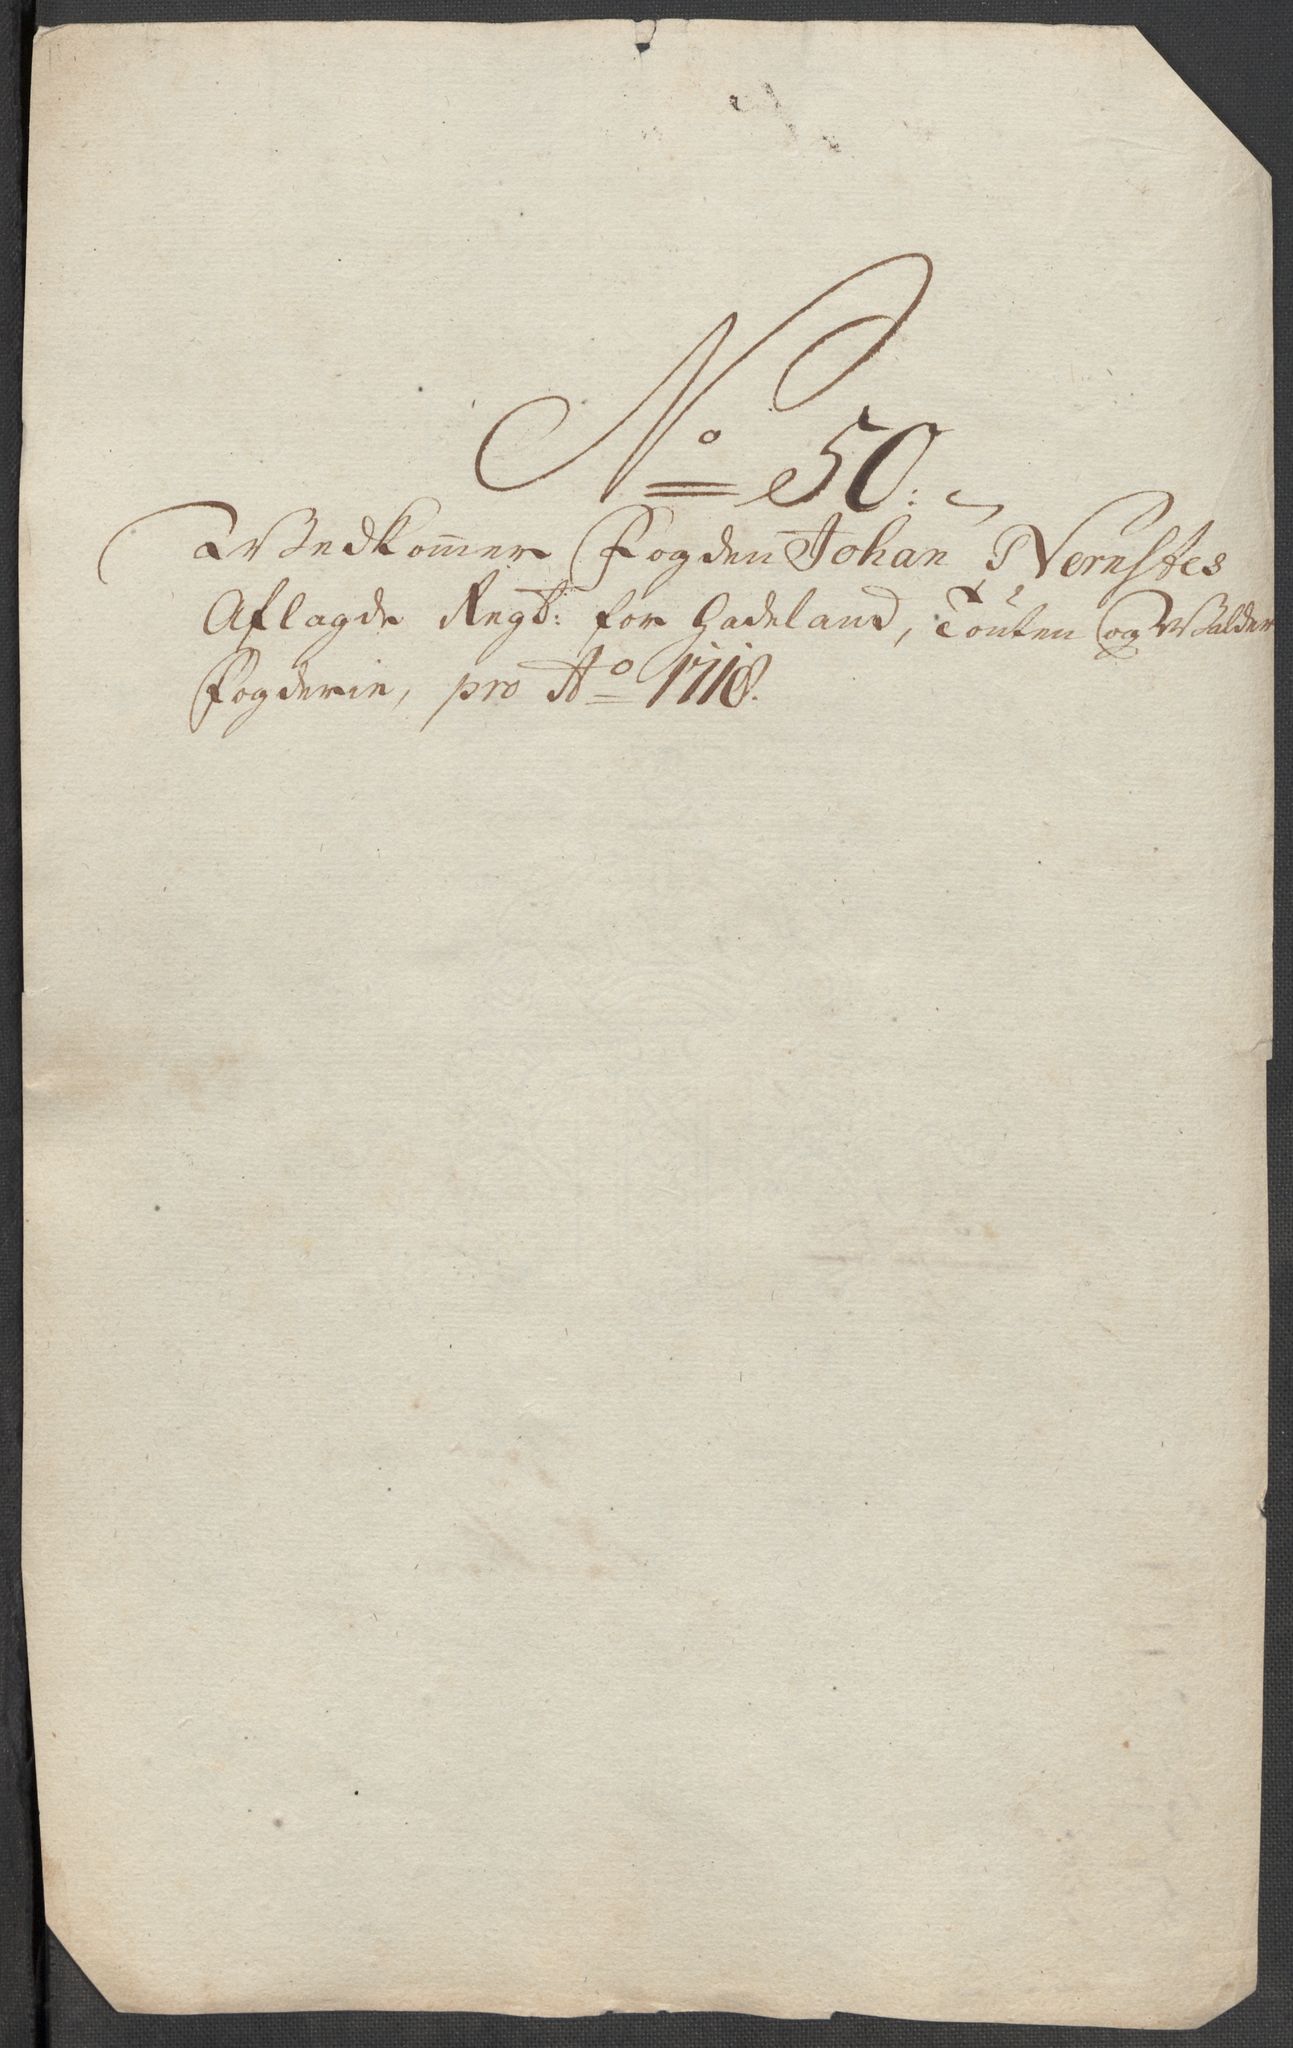 No 50.
Vedkom̄er Fogden Johan Nernstes
Aflagde Regb: for Hadeland, Touten og Valders
Fogderie, pro Ao 1718.